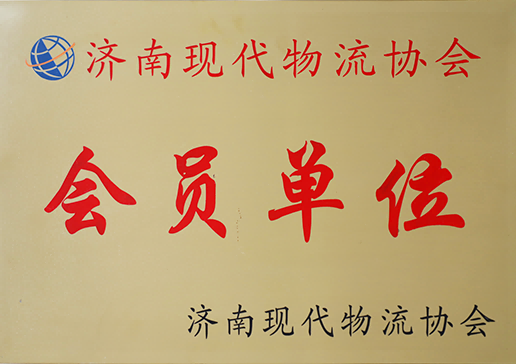 济南现代物流协会
会员单位
济南现代物流协会